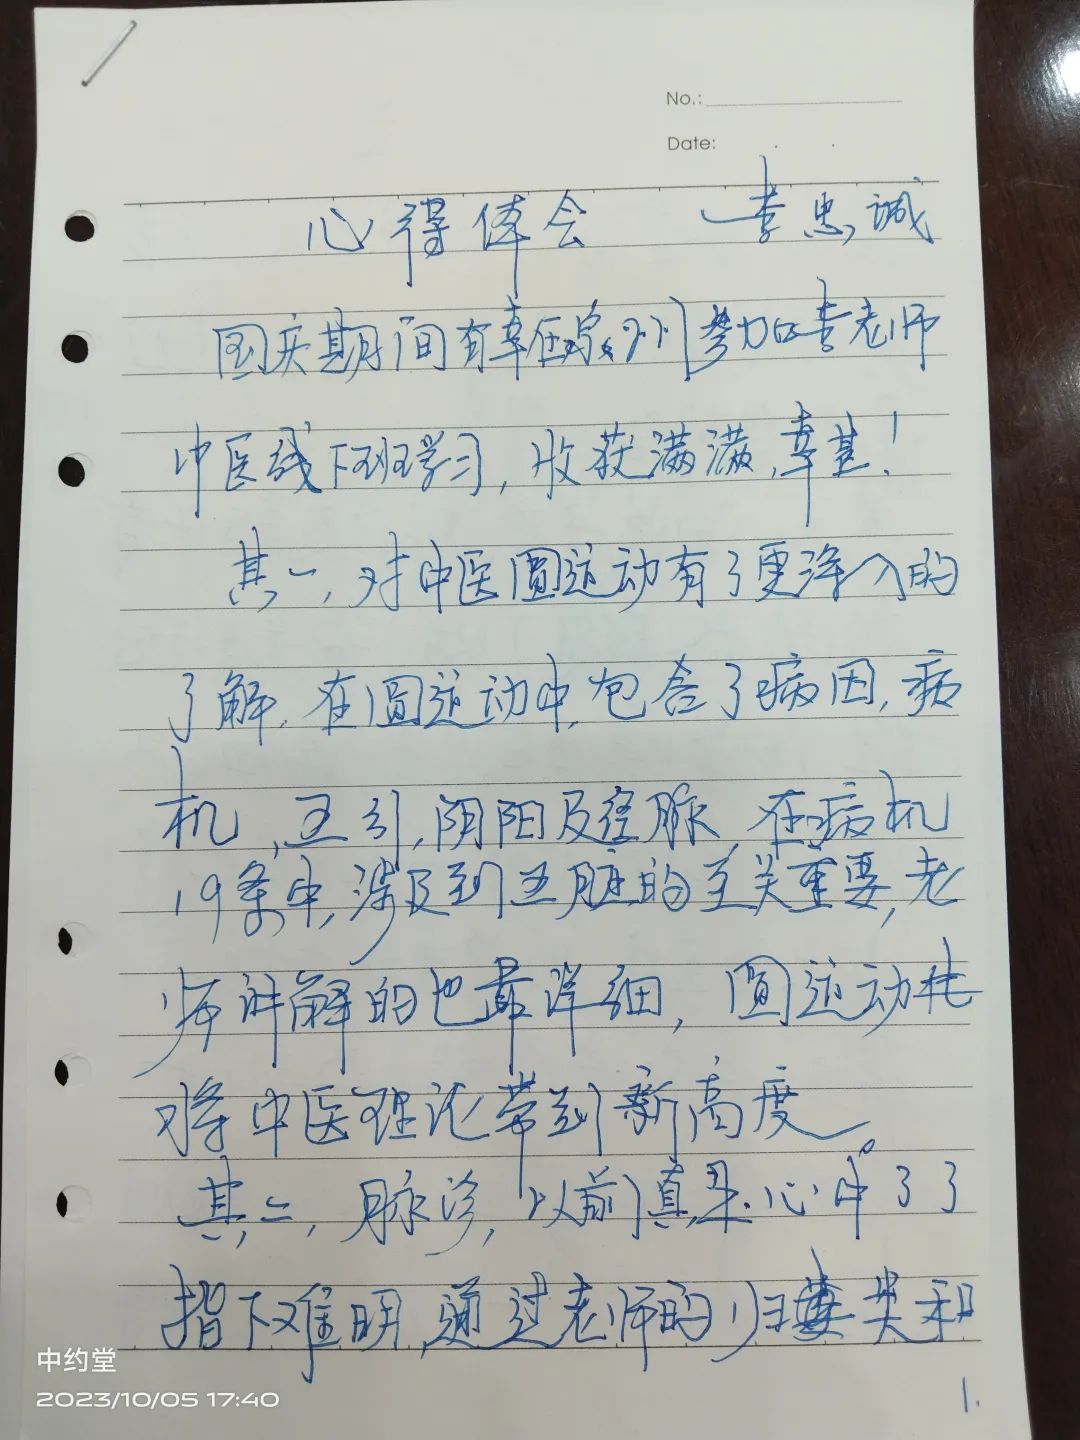 No.:
Date:
心得体会 李忠诚
国庆期间有幸在泉州参加李老师
中医线下班学习,收获满满,幸甚!
其一,对中医圆运动有了更深入的
了解,在圆运动中,包含了病因,病
机,五行,阴阳及经脉,在病机
19条中,涉及到五脏的至关重要,老
师讲解的也最详细,圆运动
将中医理论带到新高度。
其二,脉诊,以前真是心中了了
指下难明,通过老师的归类和
1.
中约堂
2023/10/05 17:40